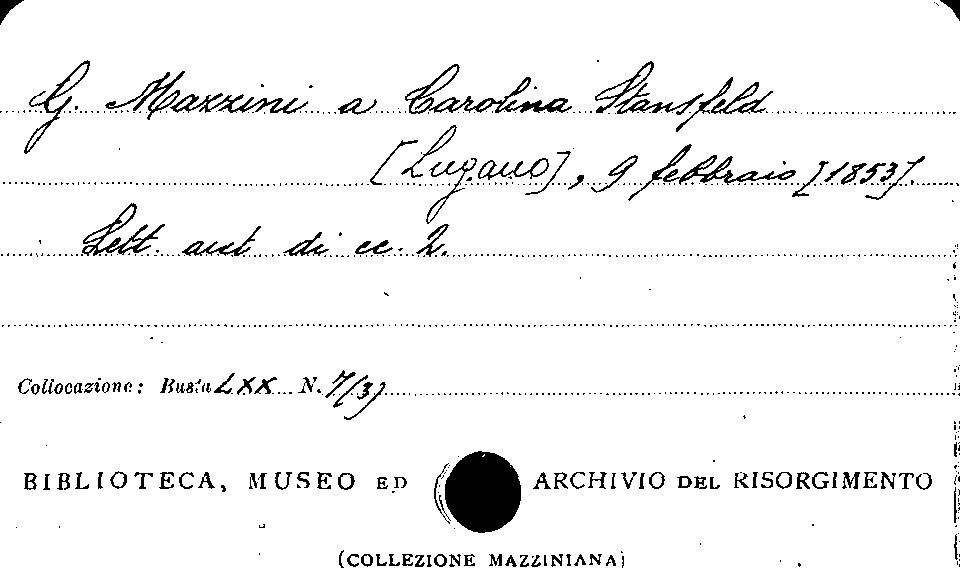 G. Mazzini a Carolina Stansfeld
[Lugano], 9 febbraio [1853].
Lett. aut. di cc. 2.
Collocazione: Busta LXX N. 7(3)
BIBLIOTECA, MUSEO ED ARCHIVIO DEL RISORGIMENTO
(COLLEZIONE MAZZINIANA)